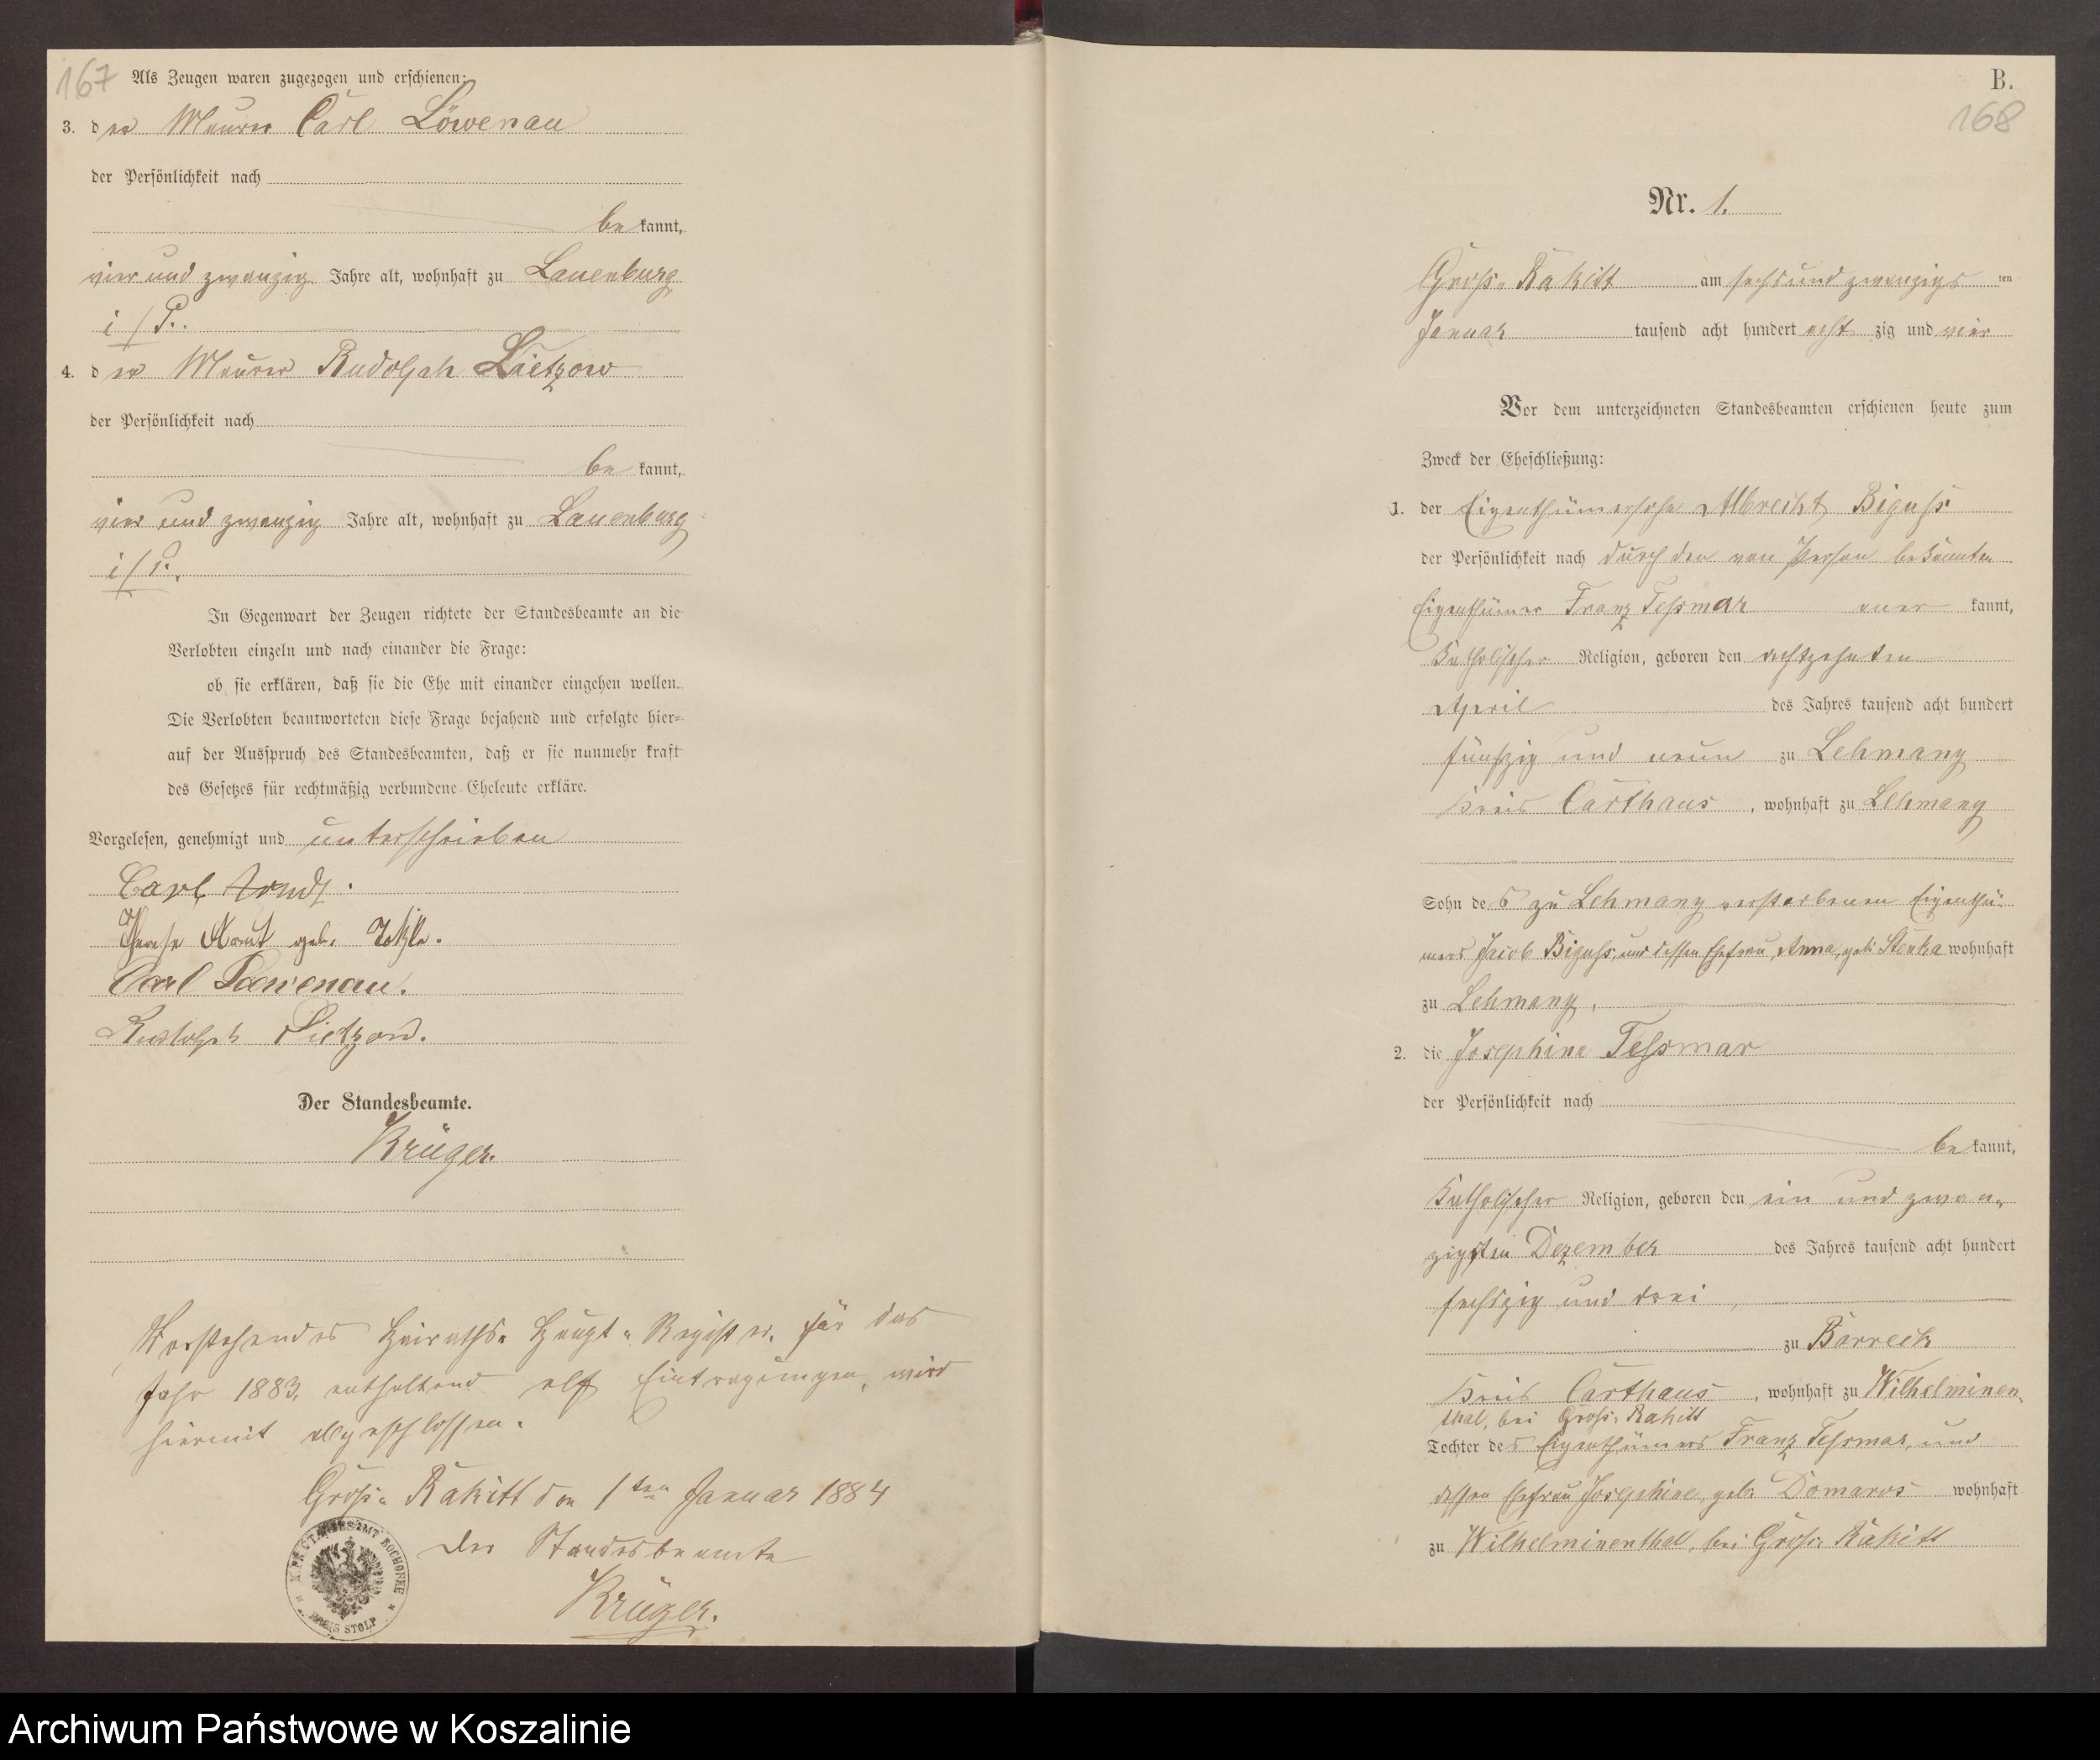 167
Als Zeugen waren zugezogen und erschienen:
3. der Maurer Carl Löwenau
der Persönlichkeit nach
bekannt,
vier und zwanzig Jahre alt, wohnhaft zu Lauenburg
i/P.
4. der Maurer Rudolph Lietzow
der Persönlichkeit nach
bekannt,
vier und zwanzig Jahre alt, wohnhaft zu Lauenburg
i/P.
In Gegenwart der Zeugen richtete der Standesbeamte an die
Verlobten einzeln und nach einander die Frage:
ob sie erklären, daß sie die Ehe mit einander eingehen wollen.
Die Verlobten beantworteten diese Frage bejahend und erfolgte hier-
auf der Ausspruch des Standesbeamten, daß er sie nunmehr kraft
des Gesetzes für rechtmäßig verbundene Eheleute erkläre.
Vorgelesen, genehmigt und unterschrieben
Carl Arndt.
Therese geb.
Carl Löwenau.
Rudolph Lietzow.
Der Standesbeamte.
Krüger.
Vorstehendes Heiraths-Haupt-Register für das
Jahr 1883, enthaltend elf Eintragungen, wird
hiermit abgeschlossen.
Gross-Rakitt den 1ten Januar 1884
Der Standesbeamte
Krüger.
STANDESAMT ROCHOWKE
KREIS STOLP
B.
168
Nr. 1.
Gross-Rakitt am sechsundzwanzigsten
Januar tausend acht hundert achtzig und vier
Vor dem unterzeichneten Standesbeamten erschienen heute zum
Zweck der Eheschließung:
1. der Eigenthümersohn Albrecht Biguss
der Persönlichkeit nach durch den von Person bekannten
Eigenthümer Franz Tessmar anerkannt,
katholischer Religion, geboren den achtzehnten
April des Jahres tausend acht hundert
fünfzig und neun zu Lehmany
Kreis Carthaus, wohnhaft zu Lehmany
Sohn des zu Lehmany verstorbenen Eigenthü-
mers Jacob Biguss, und dessen Ehefrau, Anna, geb: Stenka wohnhaft
zu Lehmany,
2. die Josephine Tessmar
der Persönlichkeit nach
bekannt,
katholischer Religion, geboren den ein und zwan-
zigsten Dezember des Jahres tausend acht hundert
sechszig und drei,
zu Borreck
Kreis Carthaus, wohnhaft zu Wilhelminen-
thal, bei Gross-Rakitt
Tochter des Eigenthümers Franz Tessmar, und
dessen Ehefrau Josephine, geb: Domaros wohnhaft
zu Wilhelminenthal, bei Gross-Rakitt
Archiwum Państwowe w Koszalinie